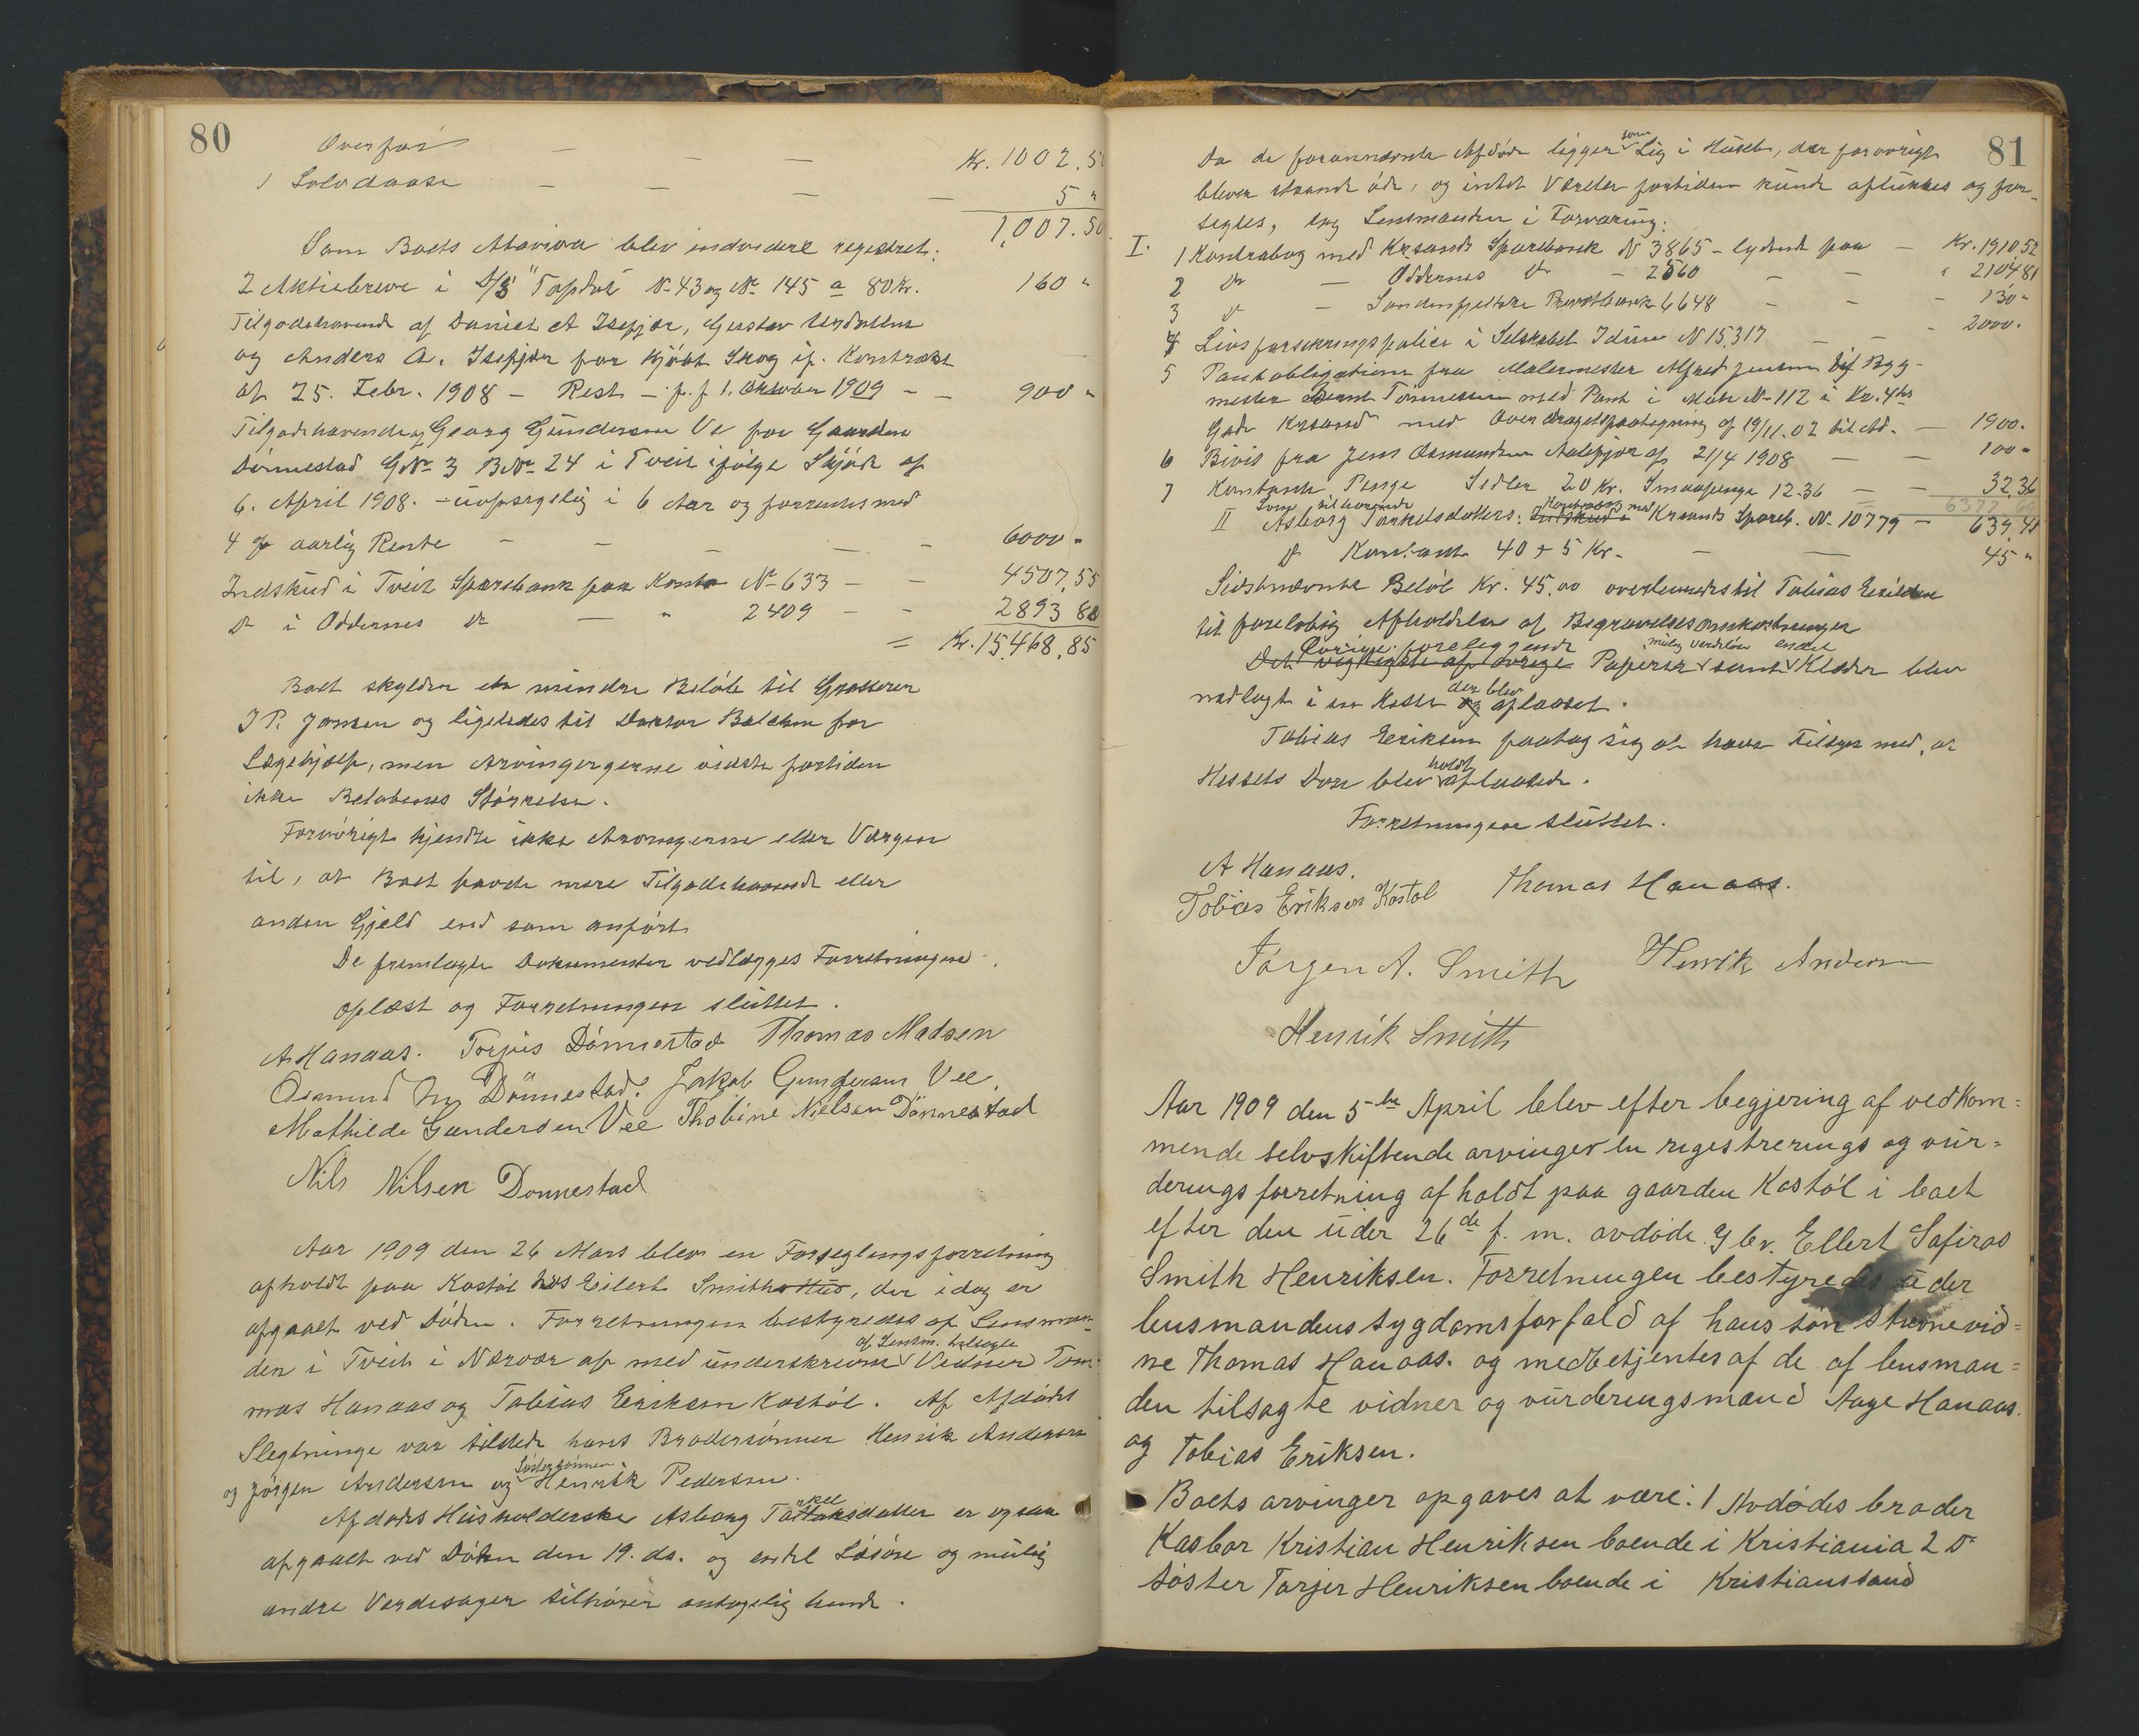 80
Overført — — — Kr. 1002.50
1 Sølvdaase — — — — 5 "
1,007.50
Som Boets Masse blev endvidere registret:
2 Aktiebreve i A/S "Topdal" No 43 og No 145 a 80 Kr. 160 "
Tilgodehavende af Daniel A Isefjær, Gustav
og Anders A. Isefjær for kjøbt Skog if. Kontrakt
af 25. Febr. 1908 – Rest – p. f 1. Oktober 1909 – — 900 "
Tilgodehavende af Georg Gundersen Ve for Gaarden
Dønnestad GNo 3 BNo 24 i Tveit ifølge Skjøde af
6. April 1908. – uopsigelig i 6 Aar og forrentes med
4 % aarlig Rente — — — — — 6000 "
Indskud i Tveit Sparebank paa Konto No 633 — — 4507,55
Do i Oddernes Do — " 2409 — — 2893 80
= Kr. 15,468,85
Boet skylder et mindre Beløb til Grosserer
J P. Jansen og ligeledes til Doktor Balchen for
Lægehjælp, men Arvingergerne vidste fortiden
ikke Beløbenes Størrelse.
Forøvrigt kjendte ikke Arvingerne eller Værgen
til, at Boet havde mere Tilgodehavende eller
anden Gjeld end som anført.
De fremlagte Dokumenter vedlægges Forretningen.
oplæst og Forretningen sluttet.
A Hanaas. Torjus Dønnestad Thomas Madsen
Osmund Dønnestad. Jakob Gundersen Vee.
Mathilde Gundersen Vee Thobine Nielsen Dønnestad
Nils Nilsen Donnestad
Aar 1909 den 26 Mars blev en Forseglingsforretning
afholdt paa Kostøl hos Eilert Smiths Hus, der idag er
afgaaet ved Døden. Forretningen bestyredes af Lensman-
den i Tveit i Nærvær af med underskrevne af Lensm. tilsagte Vidner Tom-
mas Hanaas og Tobias Eriksen Kostøl. Af Afdødes
Slegtninge var tilstede hans Brodersønner Henrik Andersen
og Jørgen Andersen og Søstersønnen Henrik Pedersen.
Afdødes Husholderske Asborg Torkelsdatter er ogsaa
afgaaet ved Døden den 19. ds. og endel Løsøre og mulig
andre Værdisager tilhører antagelig hende.
81
Da de forannævnte Afdøde ligger som Lig i Huset, der forøvrigt
bliver staaende øde, og intet Værelse fortiden kunde aflukkes og for-
segles, tog Lensmanden i Forvaring:
I. 1 Kontrabog med Krsands Sparebank No 3865 – lydende paa — Kr. 1910 52
2 Do — Oddernes Do — 2560 — — " 210481
3 Do — Søndenfjeldske Privatbank 6648 — — — 130 "
4 Livsforsikringspolice i Selskabet Idun No 15,317 — — — 2000.
5 Pantobligation fra Malermester Alfred Jensen til Byg-
mester Bernt Tønnessen med Pant i Matr No 112 i Kv. 4de
Gade Krsand med Overdragelsespaategning af 19/11.02 til Afd. — 1900.
6 Bivis fra Jens Osmundsen Aalefjær af 21/4 1908 — — 100 "
7 Kontante Penge Sedler 20 Kr. Smaapenge 12.36 — — 32,36
6377 69
II Som tilhørende Asborg Torkelsdatters: Indskud i Kontrabog med Krsands Spareb. No 10779 — 639,48
Do Kontant 40 + 5 Kr. — — 45 "
Sidstnævnte Beløb Kr. 45,00 overleveredes til Tobias Eriksen
til foreløbig Afholdelse af Begravelsesomkostninger
Det vigtigste af øvrige Øvrige foreleggende Papirer mulig værdiløse samt endel Klæder blev
nedlagt i en Kiste og der blev aflaaset.
Tobias Eriksen paatog sig at have Tilsyn med, at
Hussets Døre blev holdt aflaasede.
Forretningen sluttet.
A Hanaas. Thomas Hanaas.
Tobias Eriksen Kostøl
Jørgen A. Smith Henrik Andersen
Henrik Smith
Aar 1909 den 5te April blev efter begjering af vedkom=
mende selvskiftende arvinger en registrerings og vur=
derings forretning afholdt paa gaarden Kostøl i boet
efter den under 26de f. m. avdøde Gbr. Ellert Safiras
Smith Henriksen. Forretningen bestyredes under
lensmandens sygdomsforfald af hans søn stevnevid=
ne Thomas Hanaas. og medbetjentes af de af lensman=
den tilsagte vidner og vurderingsmænd Aage Hanaas.
og Tobias Eriksen.
Boets arvinger opgaves at være: 1 Avdødes broder
Kasbar Kristian Henriksen boende i Kristiania 2 Do
søster Tarjer Henriksen boende i Kristianssand